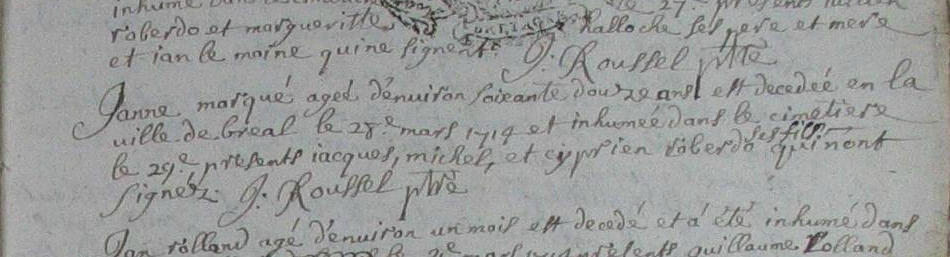 inhumé dans le 27. presents
roberdo et margueritte halloche ses pere et mere
et ian le moine qui ne signent. J. Roussel ptre
Janne marqué ageé d'enuiron soixante douze ans est decedeé en la
ville de breal le 28.e mars 1714 et inhumeé dans le cimetiere
le 29.e presents iacques, michel, et cyprien roberdo ses fils qui n'ont
signéz. J. Roussel ptre
Jan rolland agé d'enuiron un mois est decedé et a été inhumé dans
le mars 1714 presents guillaume Rolland